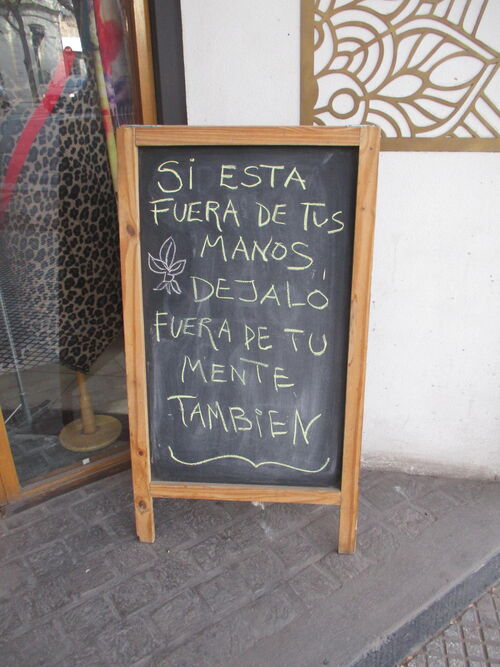 Si ESTA
FUERA DE TUS
MANOS
DEJALÓ
FUERA DE TU
MENTE
TAMBiEN